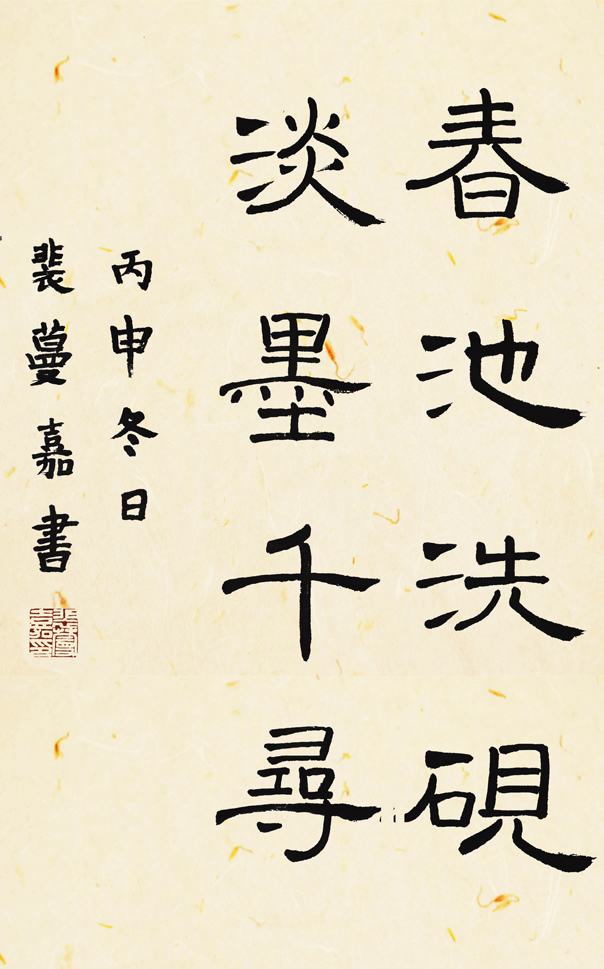 春池洗硯
淡墨千尋
丙申冬日
裴蔓嘉書
裴蔓嘉印